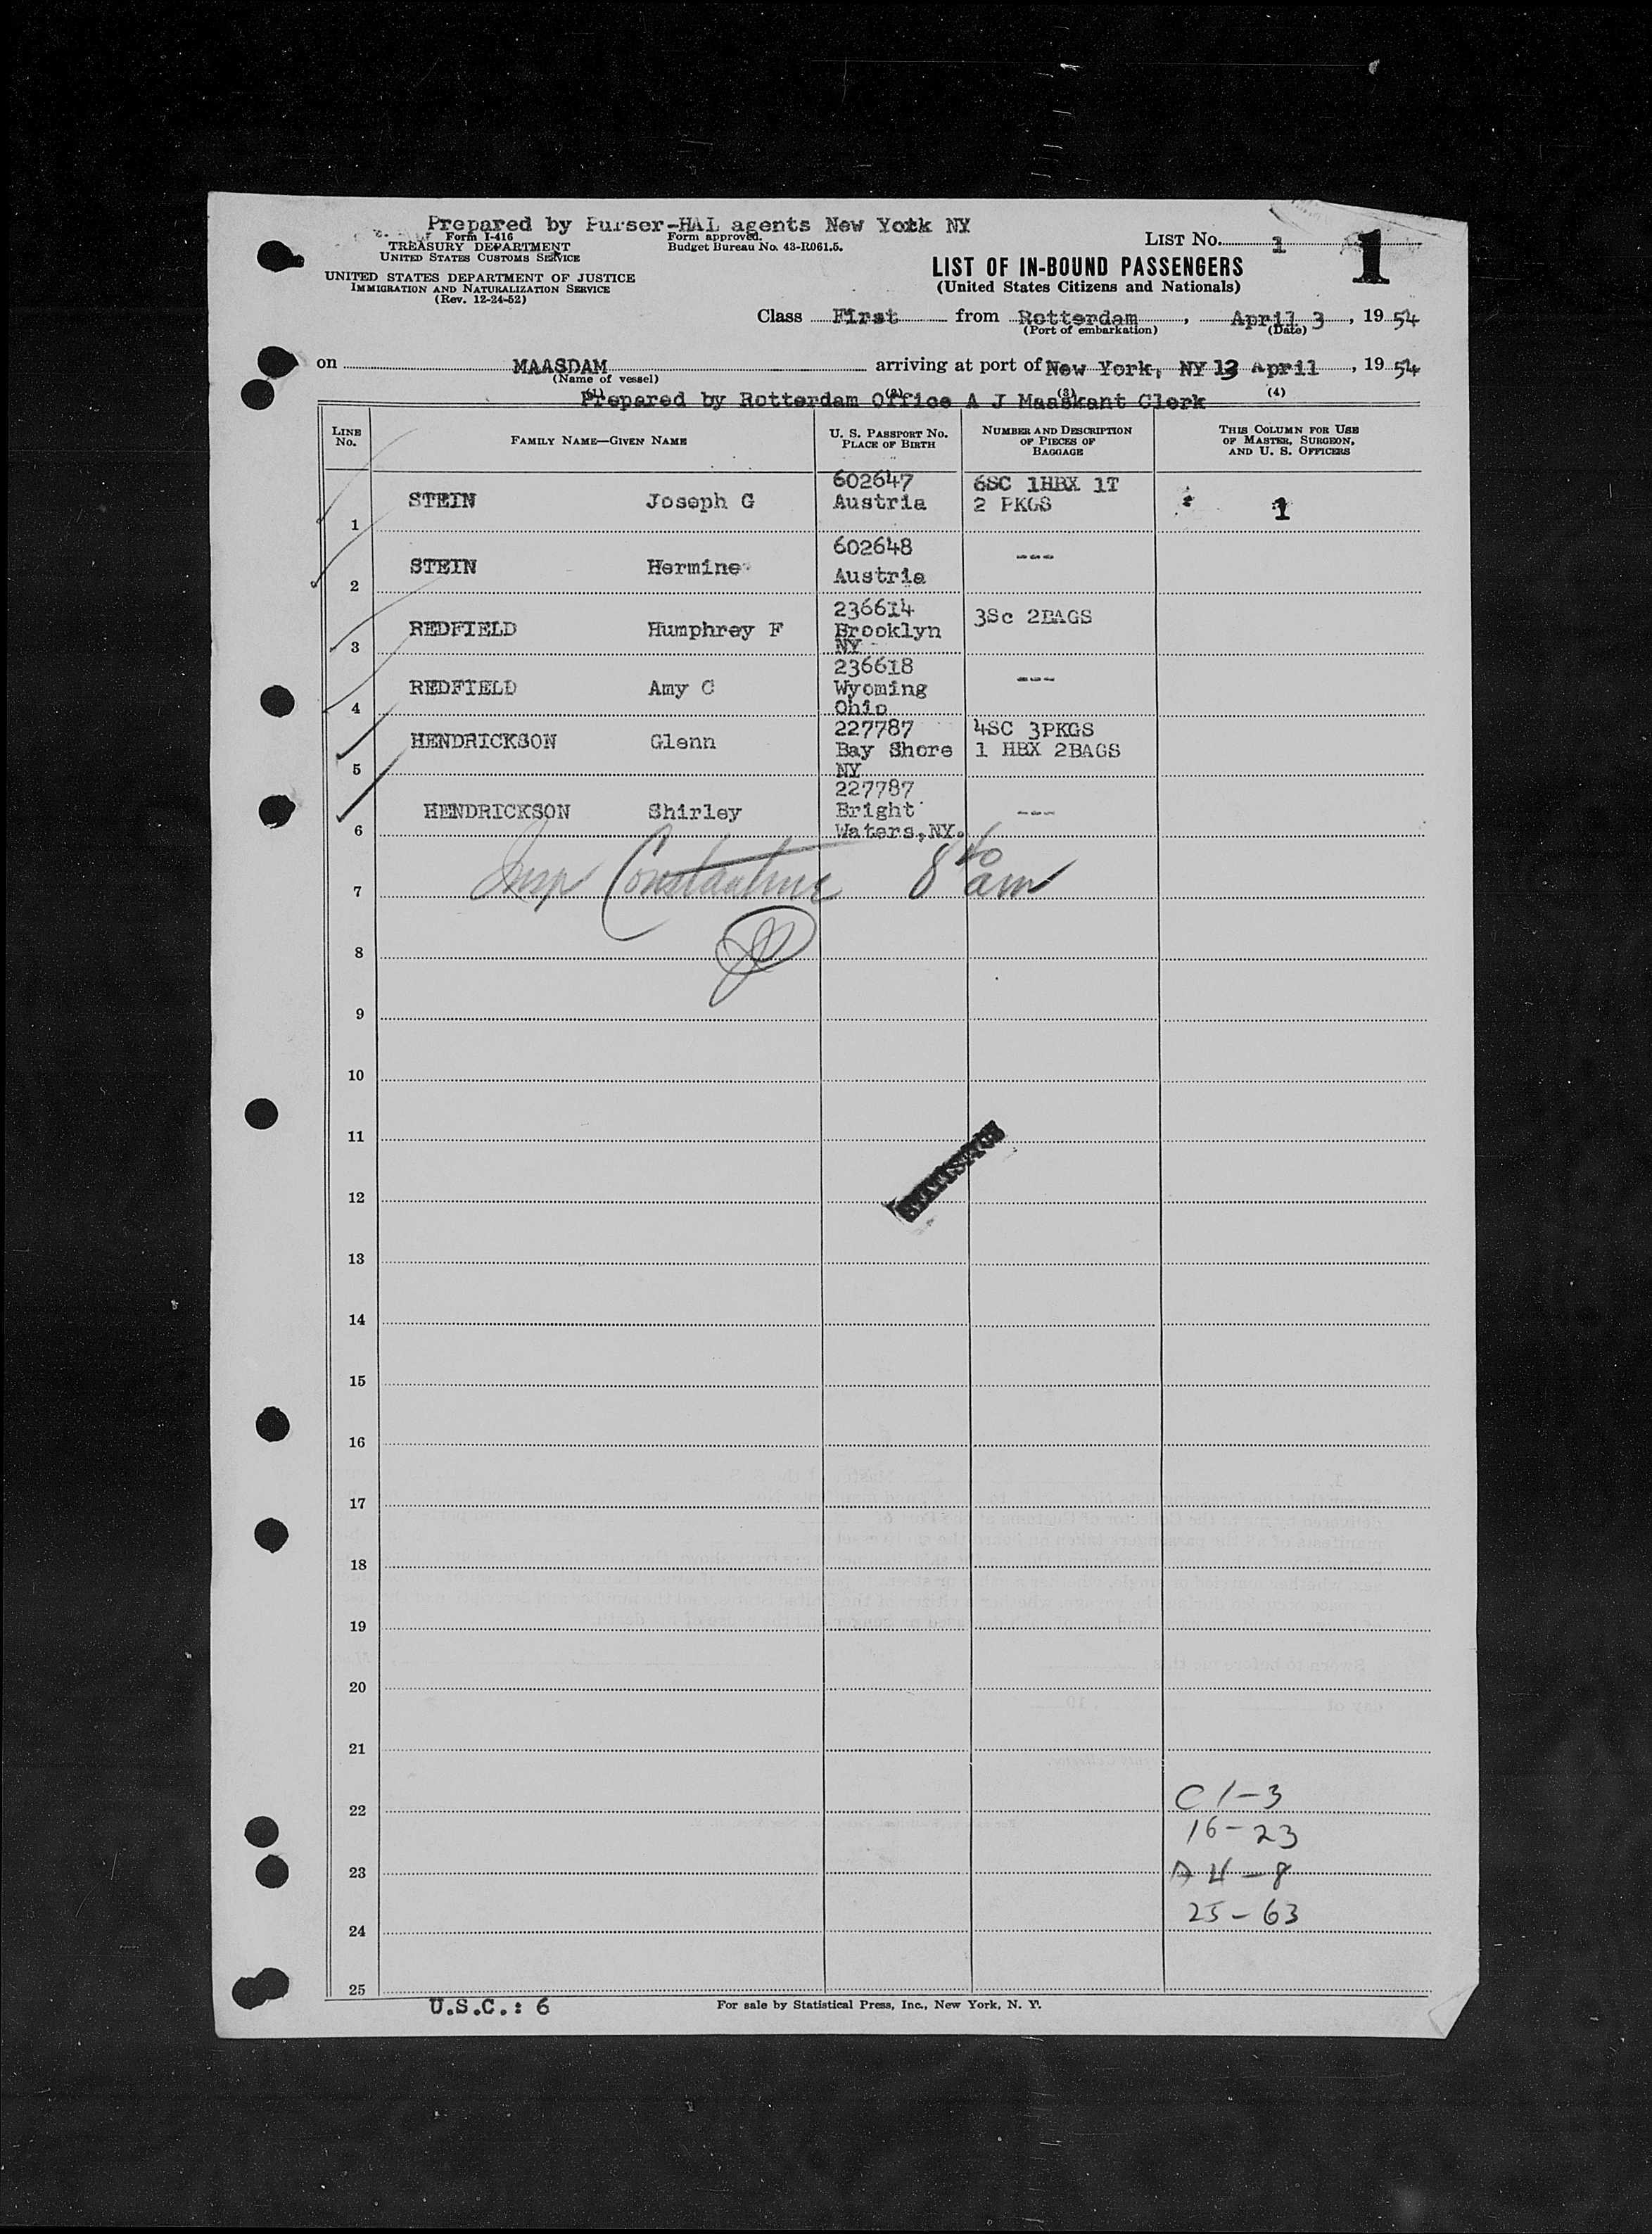 Prepared by Purser-HAL agents New York NY
Form I-416
TREASURY DEPARTMENT
UNITED STATES CUSTOMS SERVICE
UNITED STATES DEPARTMENT OF JUSTICE
IMMIGRATION AND NATURALIZATION SERVICE
(Rev. 12-24-52)
Form approved.
Budget Bureau No. 43-R061.5.
LIST No. 1
1
LIST OF IN-BOUND PASSENGERS
(United States Citizens and Nationals)
Class First from Rotterdam, April 3, 1954
(Port of embarkation) (Date)
on MAASDAM arriving at port of New York, NY 13 April, 1954
(Name of vessel)
(1) (2) (3) (4)
Prepared by Rotterdam Office A J Maaskant Clerk
LINE No. FAMILY NAME—GIVEN NAME U. S. PASSPORT No. PLACE OF BIRTH NUMBER AND DESCRIPTION OF PIECES OF BAGGAGE THIS COLUMN FOR USE OF MASTER, SURGEON, AND U. S. OFFICERS
602647 6SC 1HBX 1T
STEIN Joseph G Austria 2 PKGS 1
1
602648 ---
STEIN Hermine
Austria
2
236614 3Sc 2BAGS
REDFIELD Humphrey F Brooklyn
3 NY
236618 ---
REDFIELD Amy C Wyoming
4 Ohio
227787 4SC 3PKGS
HENDRICKSON Glenn Bay Shore 1 HBX 2BAGS
5 NY
227787
HENDRICKSON Shirley Bright ---
6 Waters,NY.
Insp Constantine 8 40 am
7
8
9
10
11
12
13
14
15
16
17
18
19
20
21
C 1-3
22
16-23
23 A 4-8
25-63
24
25
U.S.C.: 6
For sale by Statistical Press, Inc., New York, N. Y.